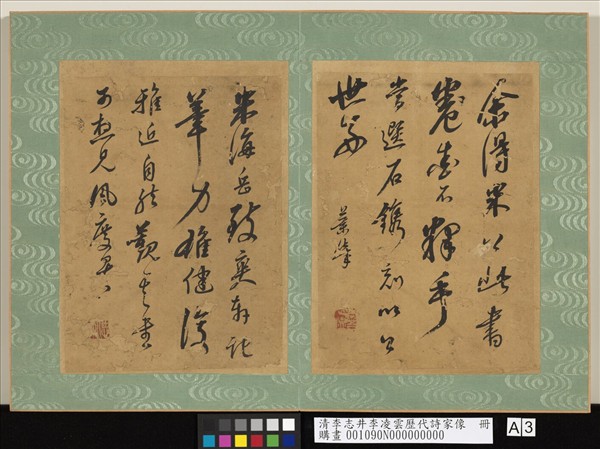 余得米公此書
卷愛不釋手
選石鐫刻以公
世
米海岳致爽軒
筆力雄健
雅近自然觀其書
可想見風度
清李志井李凌雲歷代詩家像 冊
購畫 001090N000000000
A 3